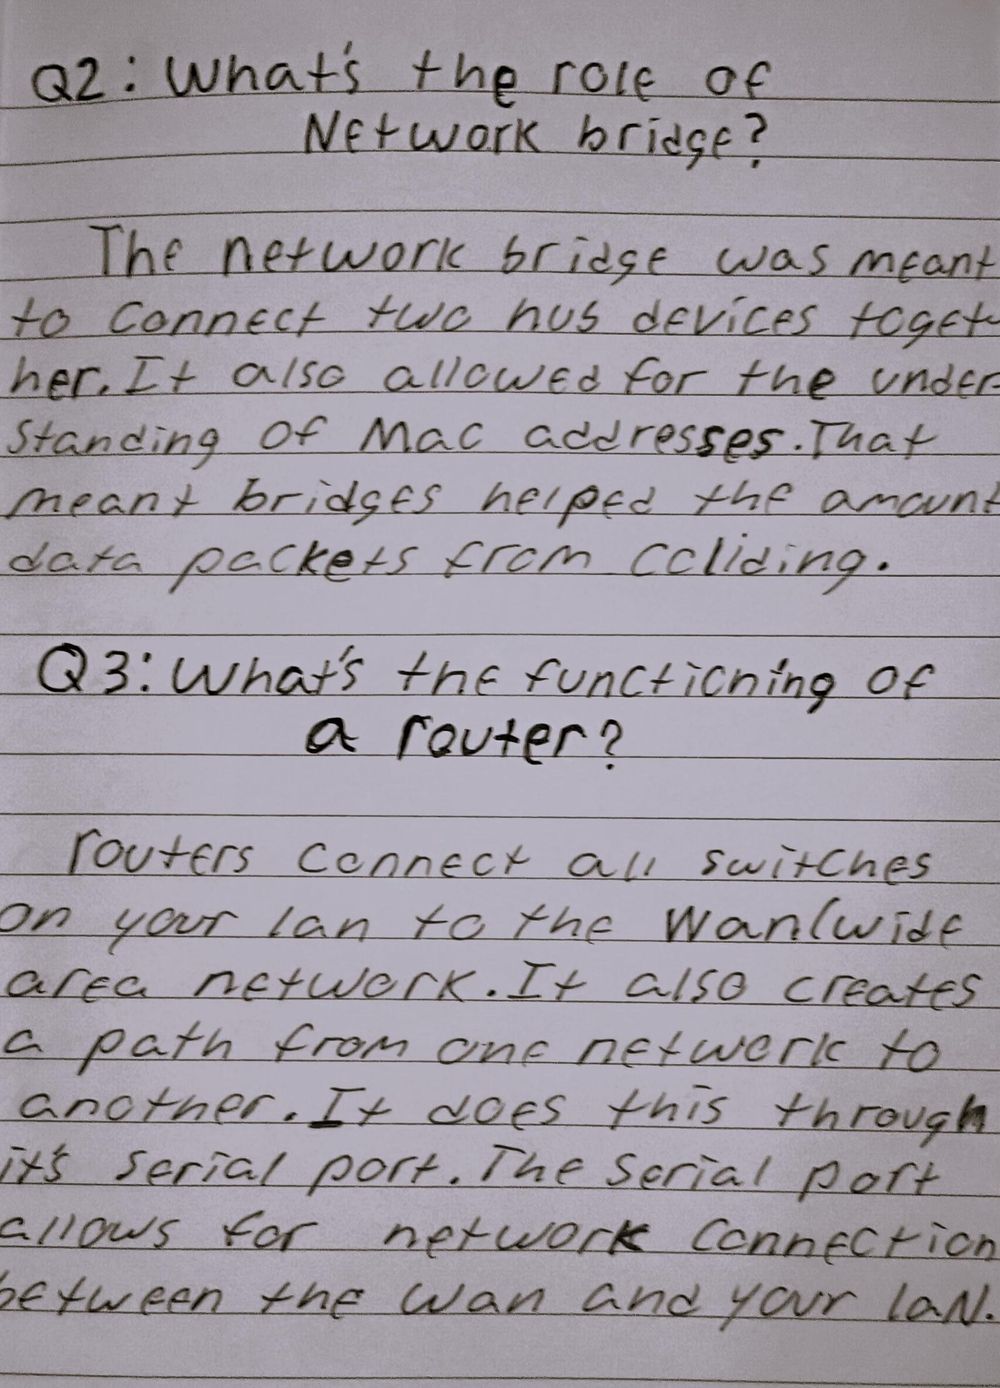 Q2: What's the role of
Network bridge?
The network bridge was meant
to connect two hub devices toget-
her. It also allowed for the under
standing of Mac addresses. That
meant bridges helped the amount
data packets from coliding.
Q3: What's the functioning of
a router?
routers connect all switches
on your lan to the Wan(wide
area network. It also creates
a path from one network to
another. It does this through
it's serial port. The serial port
allows for network connection
between the wan and your laN.